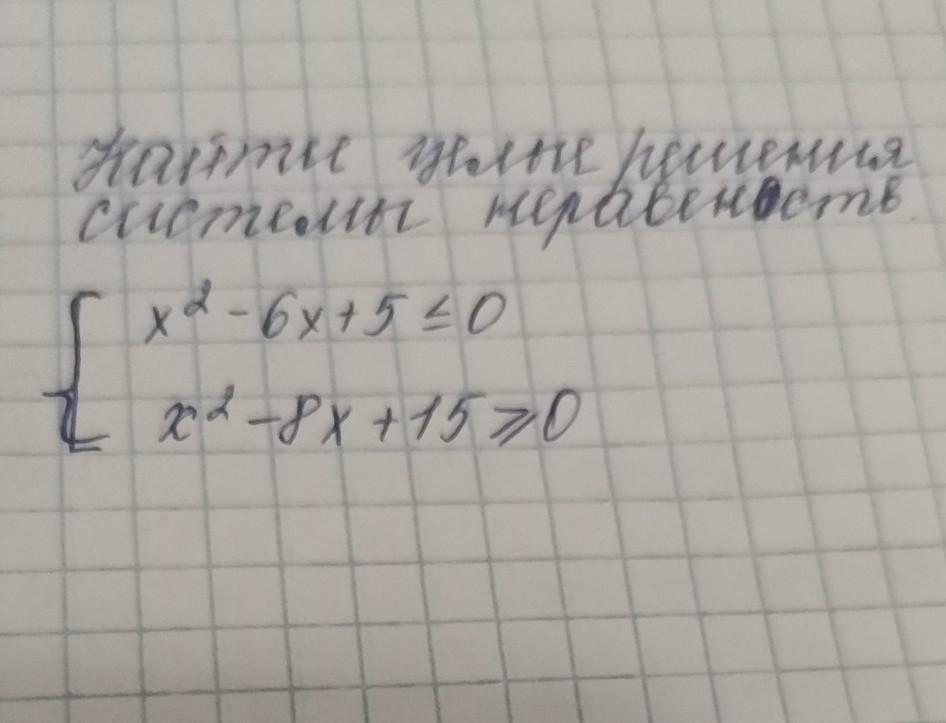 Найти целые решения
системы неравеность.
x² - 6x + 5 ≤ 0
x² - 8x + 15 ⩾ 0